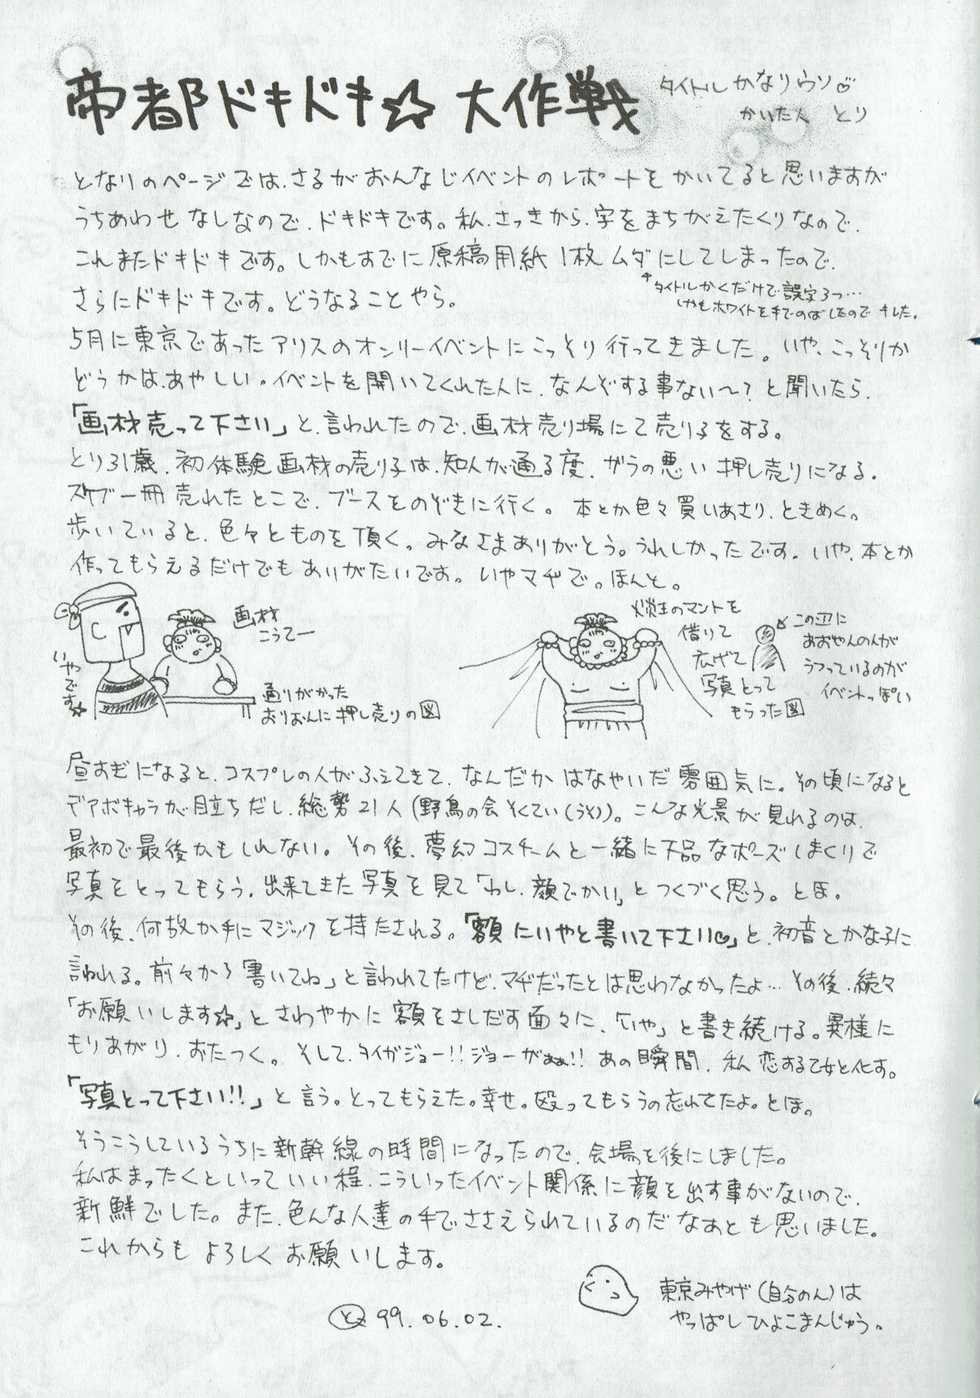 帝都ドキドキ☆大作戦
タイトルかなりウソ♡
かいた人 とり
となりのページでは、さるがおんなじイベントのレポートをかいてると思いますが
うちあわせなしなので、ドキドキです。私、さっきから、字をまちがえたくりなので、
これまたドキドキです。しかもすでに原稿用紙1枚ムダにしてしまったので、
さらにドキドキです。どうなることやら。
↑タイトルかくだけで誤字3つ…
しかもホワイトを手でのばしたので
5月に東京であったアリスのオンリーイベントにこっそり行ってきました。いや、こっそりか
どうかは、あやしい。イベントを開いてくれた人に、なんぞする事ない〜?と聞いたら、
「画材売って下さい」と、言われたので、画材売り場にて売り子をする。
とり31歳、初体験画材の売り子は、知人が通る度、ガラの悪い押し売りになる。
スケブ一冊売れたとこで、ブースをのぞきに行く。本とか色々買いあさり、ときめく。
歩いていると、色々とものを頂く。みなさまありがとう。うれしかったです。いや、本とか
作ってもらえるだけでもありがたいです。いやマヂで。ほんと。
いやです☆
画材
こうてー
通りがかった
おりおんに押し売りの図
のマントを
借りて
広げて
写真とって
もらった図
この辺に
あおやんの人が
うつっているのが
イベントっぽい
昼すぎになると、コスプレの人がふえてきて、なんだかはなやいだ雰囲気に。その頃になると
デアボキャラが目立ちだし、総勢21人(野鳥の会そくてい(うそ))。こんな光景が見れるのは、
最初で最後かもしれない。その後、夢幻コスチームと一緒に下品なポーズしまくりで
写真をとってもらう。出来てきた写真を見て「わし、顔でかい」とつくづく思う。とほ。
その後、何故か手にマジックを持たされる。「額にいやと書いて下さい♡」と、初音とかな子に
言われる。前々から「書いてね」と言われてたけど、マヂだったとは思わなかったよ…その後、続々
「お願いします☆」とさわやかに額をさしだす面々に、「いや」と書き続ける。異様に
もりあがり、おたつく。そして、タイガジョー!!ジョーがぁぁ!!あの瞬間、私恋する乙女と化す。
「写真とって下さい!!」と言う。とってもらえた。幸せ。殴ってもらうの忘れてたよ。とほ。
そうこうしているうちに新幹線の時間になったので、会場を後にしました。
私はまったくといっていい程、こういったイベント関係に顔を出す事がないので、
新鮮でした。また、色んな人達の手でささえられているのだなぁとも思いました。
これからもよろしくお願いします。
と 99.06.02.
東京みやげ(自分のん)は
やっぱしひよこまんじゅう。